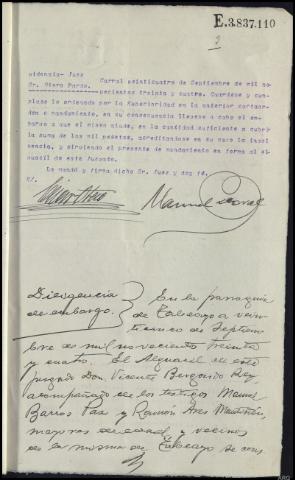 E.3.837.110
2
videncia- Juez   Corral veinticuatro de Septiembre de mil no-
Sr. Otero Pardo.   vecientos treinta y cuatro. Guardese y cum-
plase lo ordenado por la Superioridad en la anterior cartaor-
den o mandamiento, en su consecuencia llevese a cabo el em-
bargo a que el mismo alude, en la cantidad suficiente a cubrir
la suma de las mil pesetas, acreditandose en su caso la insol-
vencia, y sirviendo el presente de mandamiento en forma al al-
guacil de este Juzgado.
Lo mandó y firma dicho Sr. Juez y doy fé,
Manuel
Diligencia
de embargo.
En la parroquia
de Tabeayo a vein
ticinco de Septiem
bre de mil novecientos treinta
y cuatro. El Alguacil de este
Juzgado Don Vicente Bergondo Rey
acompañado de los testigos Manuel
Barros Paz y Ramón Ares Mantiñán
mayores de edad y vecinos
de la misma de Tabeayo se cons